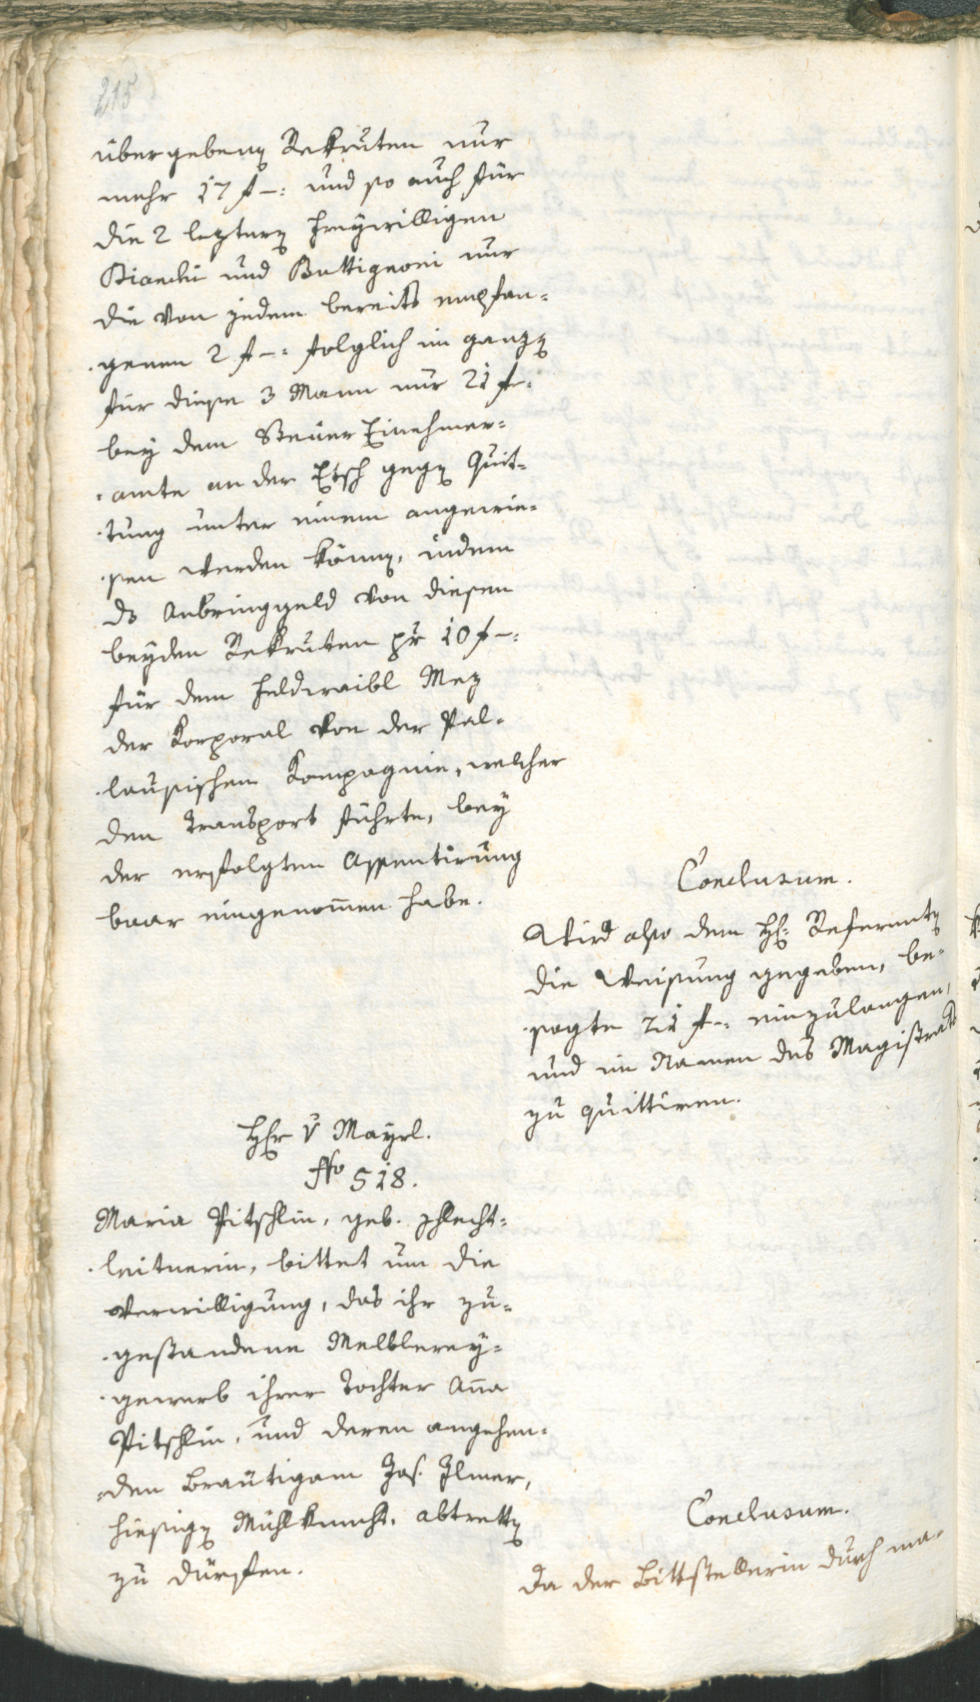 215
übergebenen Rekruten nur
mehr 17 f –: und so auch für
die 2 leztern freywilligen
Bianchi und Battignoni nur
die von jedem bereits empfan=
genen 2 f –: folglich im ganzen
für diese 3 Mann nur 21 f –.
bey dem Steuer Einehmer=
amte an der Etsch gegen Quit=
tung unter einem angewie=
sen werden könne, indem
ds Anbringgeld von diesen
beyden Rekruten pr 10 f –:
für dem Feldwaibl Mez
der Korporal von der Pal=
lausischen Kompagnie, welcher
den Transport führte, bey
der erfolgten Assentirung
baar eingenommen habe.
Conclusum.
Wird also dem H: Referenten
die Weisung gegeben, be=
sagte 21 f –: einzulangen,
und im Namen des Magistrats
zu quittiren.
Hr v Mayrl.
No 518.
Maria Pitschlin, geb. Schlecht=
leitnerin, bittet um die
Verwilligung, das ihr zu=
gestandene Melblerey=
gewerb ihrer Tochter Anna
Pitschlin, und deren angehen=
den Bräutigam Jos. Ilmer,
hiesigen Mühlknecht, abtretten
zu dürfen.
Conclusum.
Da der Bittstellerin durch ma=